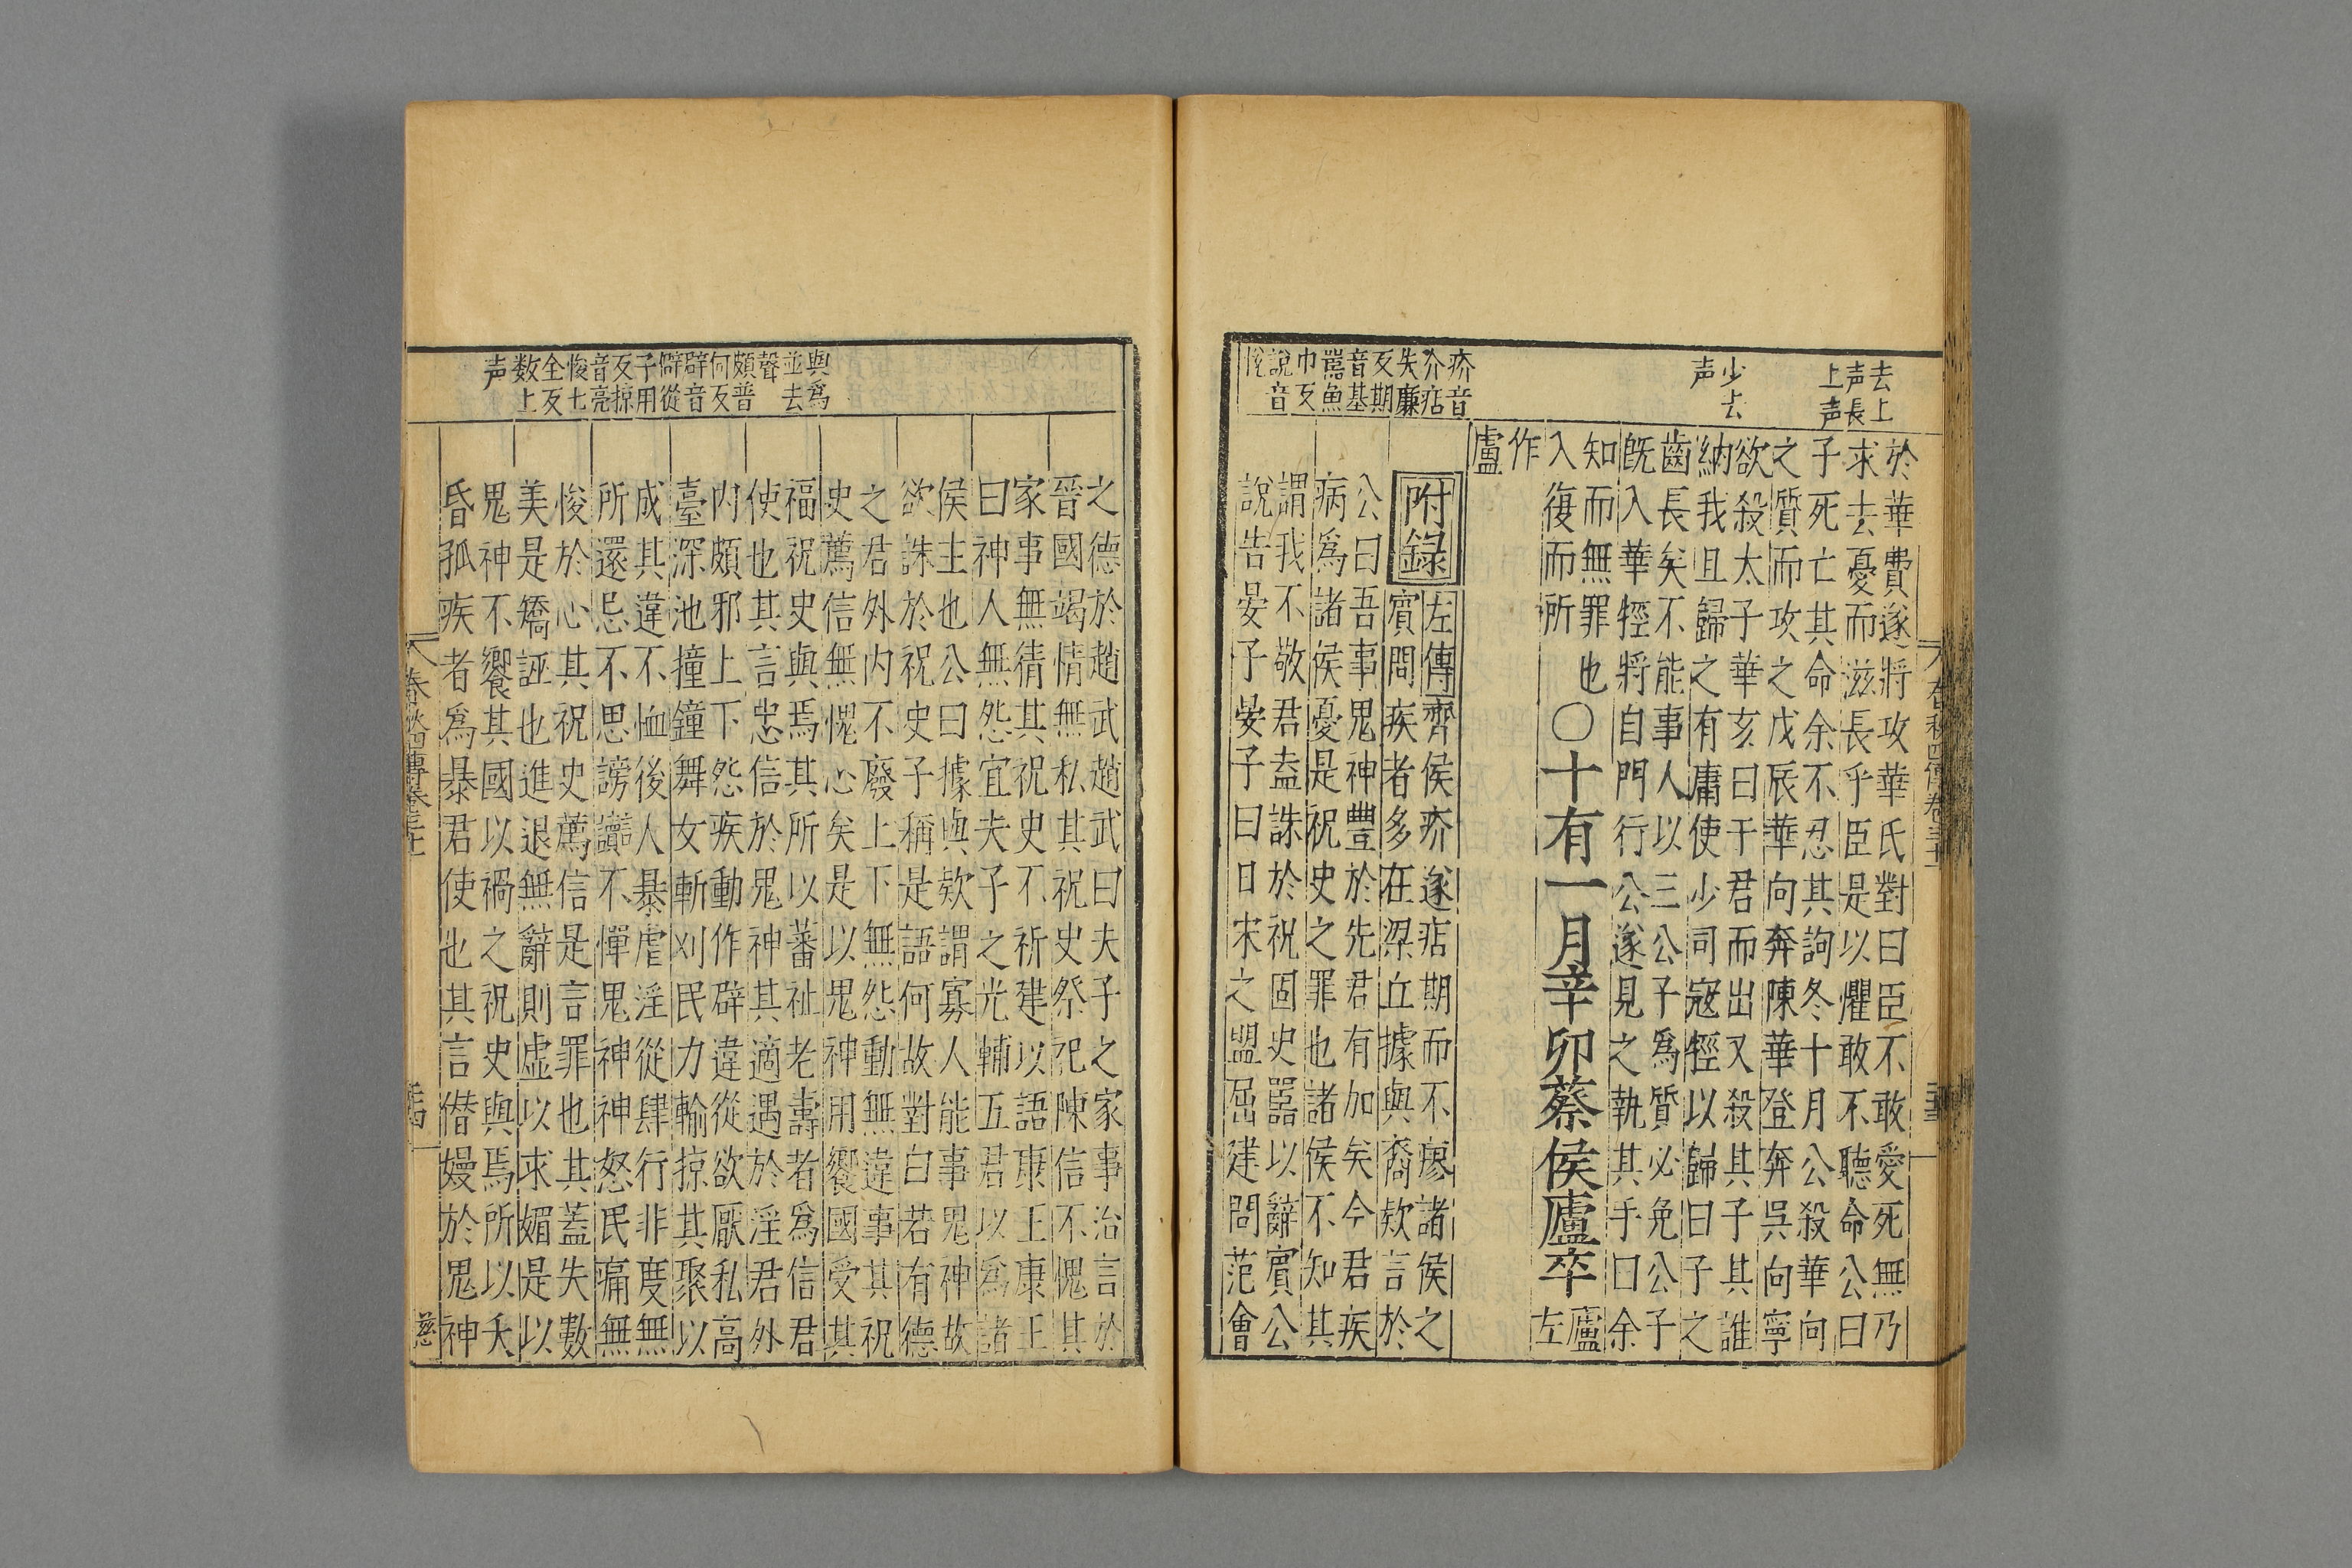 去上
声長
上声
少去
声
於華費遂將攻華氏對曰臣不敢愛死無乃
求去憂而滋長乎臣是以懼敢不聽命公曰
子死亡其命余不忍其訽冬十月公殺華向
之質而攻之戊辰華向奔陳華登奔吳向寧
欲殺太子華亥曰干君而出又殺其子其誰
納我且歸之有庸使少司寇牼以歸曰子之
齒長矣不能事人以三公子爲質必免公子
旣入華牼將自門行公遂見之執其手曰余
知而無罪也
入復而所
○十有一月辛卯蔡侯廬卒
廬
左
作
盧
疥音
介痁
失廉
反期
音基
嚚魚
巾反
說音
悅
附錄
左傳齊侯疥遂痁期而不瘳諸侯之
賓問疾者多在梁丘據與裔欵言於
公曰吾事鬼神豐於先君有加矣今君疾
病爲諸侯憂是祝史之罪也諸侯不知其
謂我不敬君盍誅於祝固史嚚以辭賓公
說告晏子晏子曰日宋之盟屈建問范會
與爲
並去
聲
頗普
何反
辟音
僻從
子用
反掠
音亮
悛七
全反
数上
声
之德於趙武趙武曰夫子之家事治言於
晉國竭情無私其祝史祭祀陳信不愧其
家事無猜其祝史不祈建以語康王康王
曰神人無怨宜夫子之光輔五君以爲諸
侯主也公曰據與欵謂寡人能事鬼神故
欲誅於祝史子稱是語何故對曰若有德
之君外內不廢上下無怨動無違事其祝
史薦信無愧心矣是以鬼神用饗國受其
福祝史與焉其所以蕃祉老壽者爲信君
使也其言忠信於鬼神其適遇淫君外
內頗邪上下怨疾動作辟違從欲厭私高
臺深池撞鐘舞女斬刈民力輸掠其聚以
成其違不恤後人暴虐淫從肆行非度無
所還忌不思謗讟不憚鬼神神怒民痛無
悛於心其祝史薦信是言罪也其蓋失數
美是矯誣也進退無辭則虛以求媚是以
鬼神不饗其國以禍之祝史與焉所以夭
昏孤疾者爲暴君使也其言僭嫚於鬼神